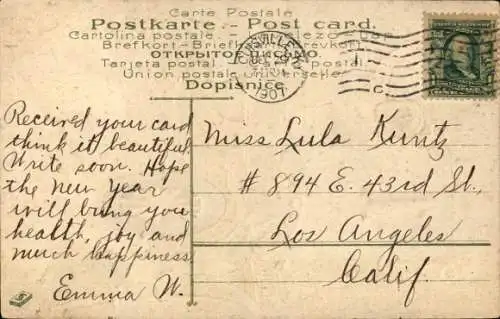 Carte Postale
Postkarte - Post card.
Cartolina postale
Brefkort
ОТКРЫТОЕ
Tarjeta postal
Union postale universelle
Dopisnice
1907
Received your card
think it beautiful
Write soon. Hope
the new year
will bring you
health, joy and
much happiness
Emma W.
Miss Lula Kuntz
# 894 E. 43rd St.,
Los Angeles
Calif.